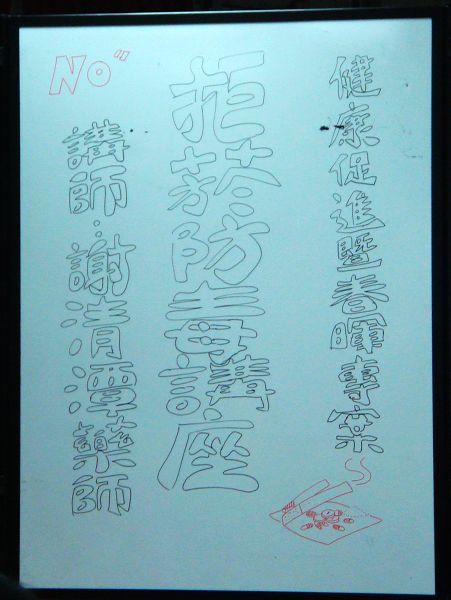 健康促進暨春暉專案
拒菸防毒講座
NO"
講師:謝清 藥師